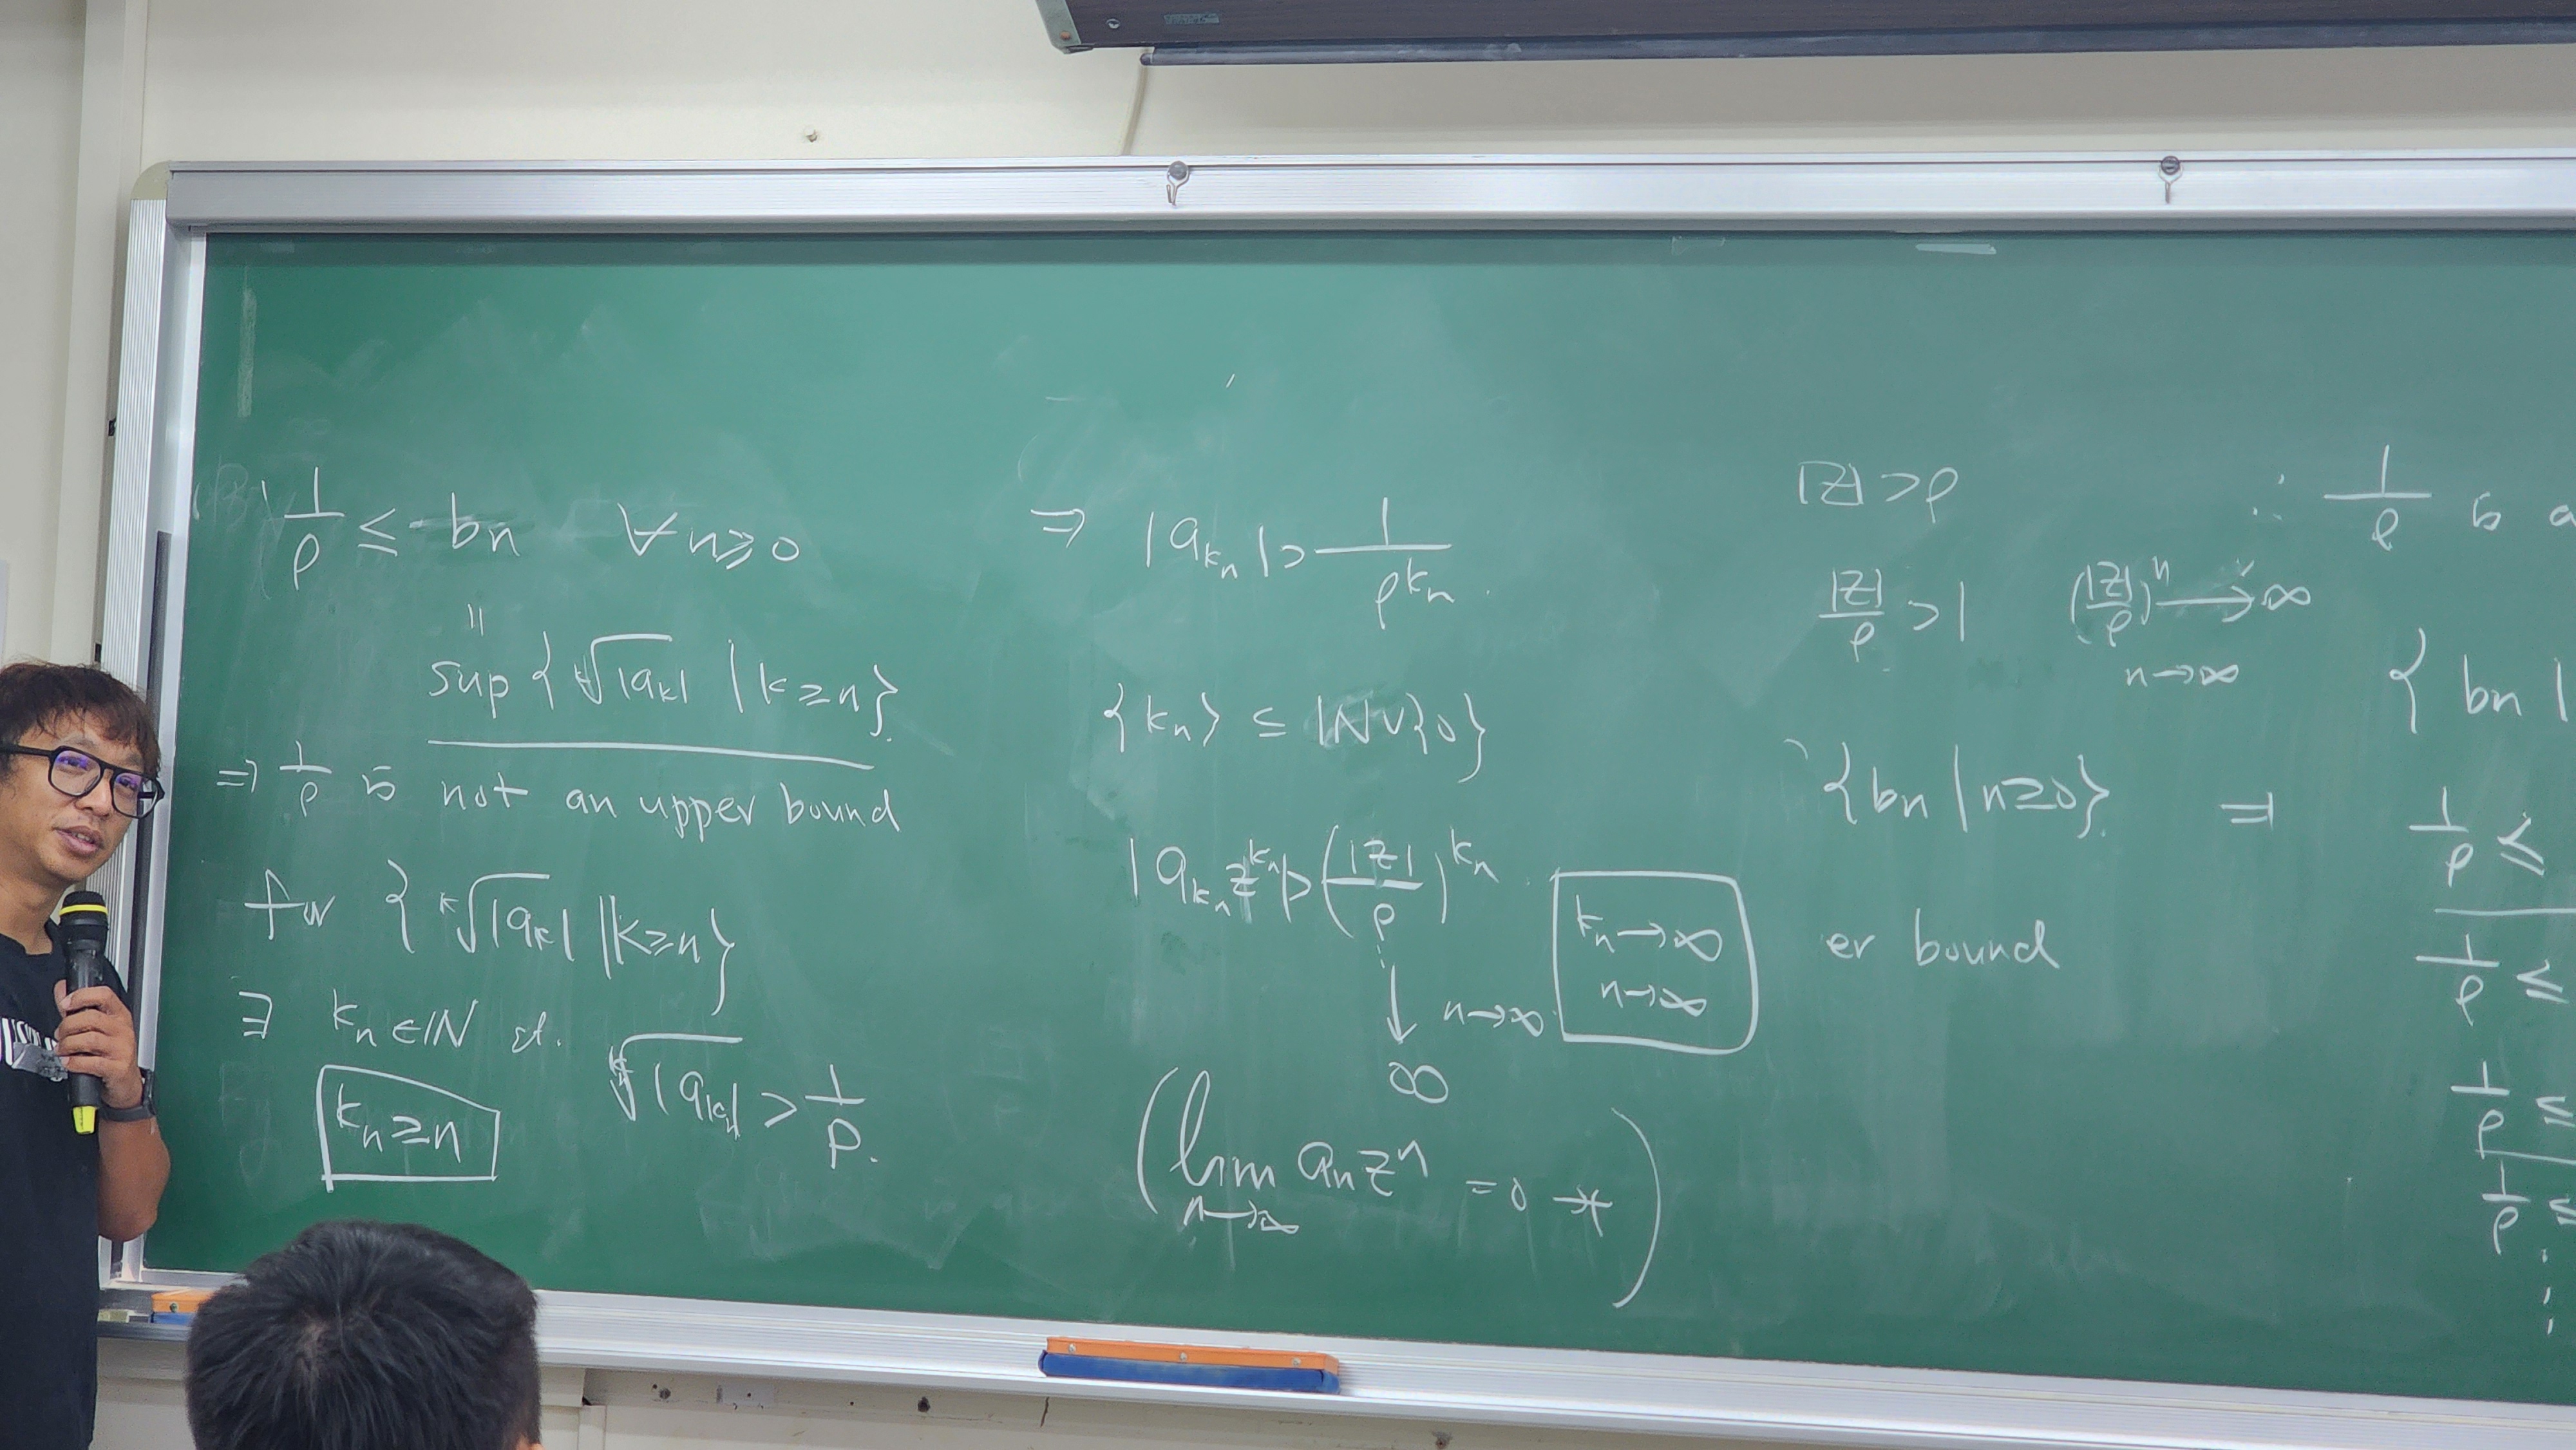 1/ρ ≤ bn ∀n≥0
=
sup { ᵏ√|aₖ| | k≥n}
⇒ 1/ρ is not an upper bound
for { ᵏ√|aₖ| | k≥n}
∃ kₙ∈ℕ st. ᵏₙ√|aₖₙ| > 1/ρ.
kₙ≥n
⇒ |aₖₙ| > 1/ρ^kₙ
{kₙ} ⊆ ℕ∪{0}
|aₖₙ z^kₙ| > (|z|/ρ)^kₙ
kₙ→∞
n→∞
↓ n→∞
∞
(lim n→∞ aₙzⁿ = 0 ※)
|z| > ρ
|z|/ρ > 1 (|z|/ρ)ⁿ → ∞
n→∞
{bn | n≥0}
er bound
∴ 1/ρ is a
{ bn |
⇒ 1/ρ ≤
1/ρ ≤
1/ρ ≤
1/ρ ≤
⋮